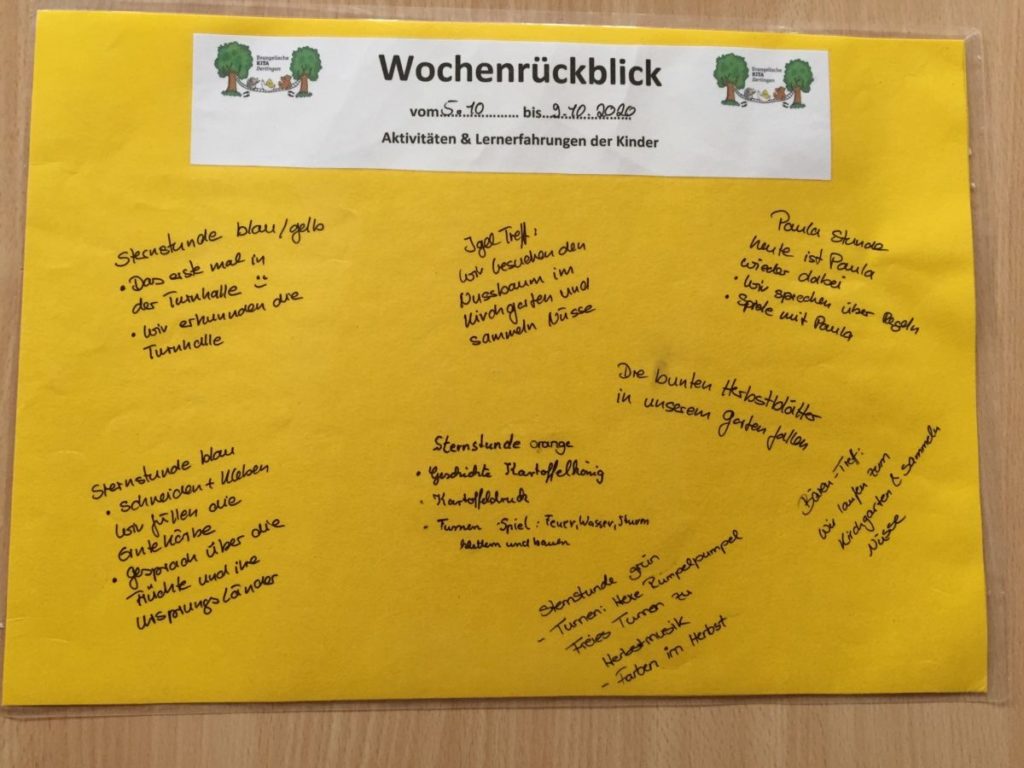 Evangelische
KITA
Derdingen
Wochenrückblick
Evangelische
KITA
Derdingen
vom 5.10 bis 9.10.2020
Aktivitäten & Lernerfahrungen der Kinder
Sternstunde blau/gelb
• Das erste mal in
der Turnhalle
• Wir erkunden die
Turnhalle
Igel Treff:
Wir besuchen den
Nussbaum im
Kirchgarten und
sammeln Nüsse
Paula Stunde
heute ist Paula
wieder dabei
• Wir sprechen über Regeln
• Spiele mit Paula
Die bunten Herbstblätter
in unserem Garten fallen
Sternstunde blau
• Schneiden + Kleben
Wir füllen die
Erntekörbe
• Gespräch über die
Früchte und ihre
Ursprungsländer
Sternstunde orange
• Geschichte Kartoffelkönig
• Kartoffeldruck
- Turnen Spiel: Feuer, Wasser, Sturm
klettern und bauen
Bären-Treff:
Wir laufen zum
Kirchgarten & sammeln
Nüsse
Sternstunde grün
- Turnen: Hexe Rumpelpumpel
Freies Turnen zu
Herbstmusik
- Farben im Herbst